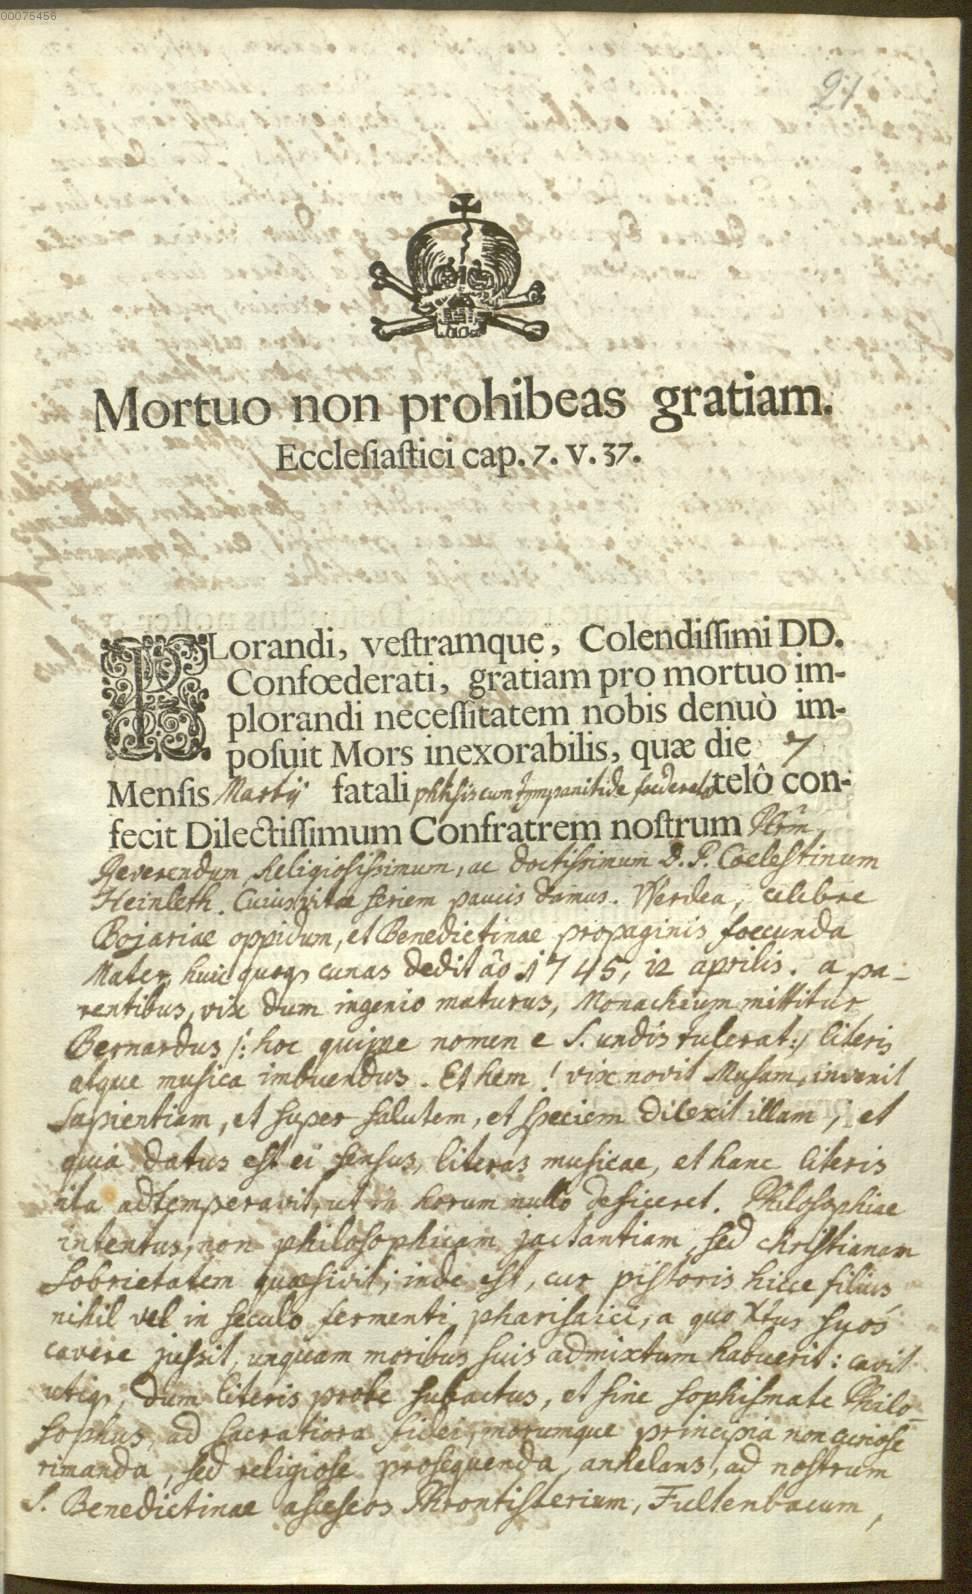 00075456
21
Mortuo non prohibeas gratiam.
Ecclesiastici cap. 7. v. 37.
PLorandi, vestramque, Colendissimi DD.
Confœderati, gratiam pro mortuo im-
plorandi necessitatem nobis denuò im-
posuit Mors inexorabilis, quæ die 7
Mensis Martij fatali phthisis cum tympanitide foederato telô con-
fecit Dilectissimum Confratrem nostrum
Reverendum Religiosissimum, ac doctissimum D. P. Coelestinum
Heinleth. Cuius vitae seriem paucis damus. Werdea, celebre
Bojariae oppidum, et Benedictinae propaginis foecunda
Mater, huic quoq cunas dedit ao 1745, 12 aprilis. a pa-
rentibus, vix dum ingenio maturus, Monachium mittitur
Bernardus /: hoc quippe nomen e S. undis tulerat :/ literis
atque musica imbuendus. Et hem! vix novit Musam, invenit
sapientiam, et super salutem, et speciem dilexit illam; et
quia datus est ei sensus, literas musicae, et hanc literis
ita adtemperavit, ut in horum nullo deficeret. Philosophiae
intentus, non philosophicam jactantiam, sed christianam
sobrietatem quaesivit; inde est, cur pistoris hicce filius
nihil vel in seculo fermenti pharisaici, a quo Xtus suos
cavere jussit, unquam moribus suis admixtum habuerit: cavit
utiq, dum literis probe subactus, et sine sophismate Philo-
sophus, ad sacratiora fidei, morumque principia non curiose
rimanda, sed religiose prosequenda anhelans, ad nostrum
S. Benedictinae asceseos Phrontisterium, Fultenbacum,